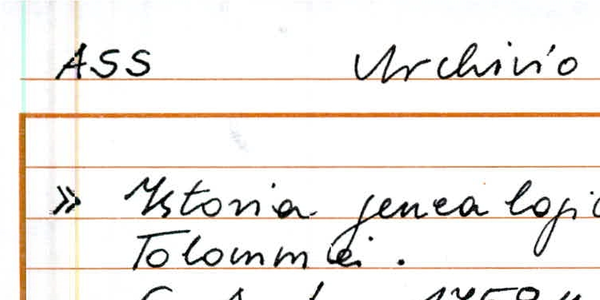 ASS Archivio
» Istoria genealogi
Tolommei.